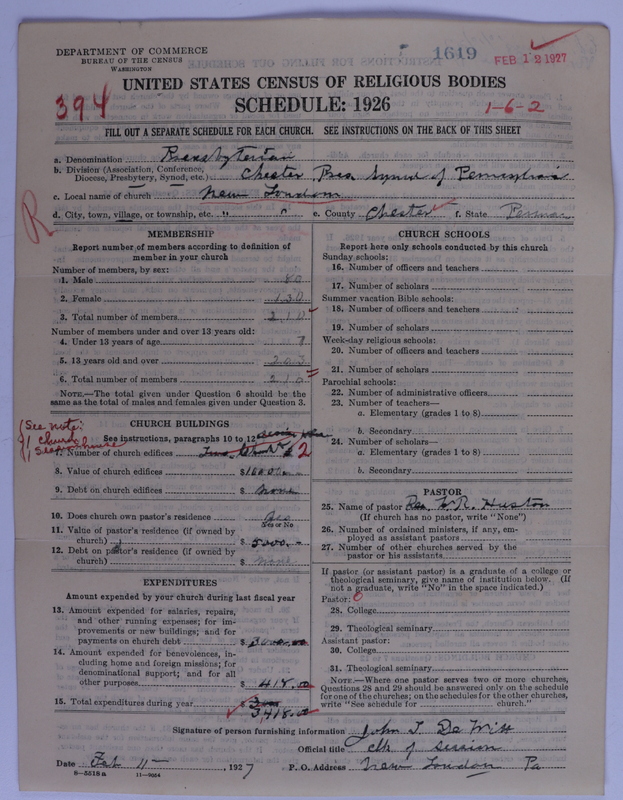 DEPARTMENT OF COMMERCE
BUREAU OF THE CENSUS
WASHINGTON
1619
FEB 12 1927
UNITED STATES CENSUS OF RELIGIOUS BODIES
394
SCHEDULE: 1926
1-6-2
FILL OUT A SEPARATE SCHEDULE FOR EACH CHURCH. SEE INSTRUCTIONS ON THE BACK OF THIS SHEET
a. Denomination Presbyterian
b. Division (Association, Conference, Diocese, Presbytery, Synod, etc.) Chester Pres. Synod of
c. Local name of church New London
d. City, town, village, or township, etc. " " e. County Chester f. State
R
MEMBERSHIP
Report number of members according to definition of
member in your church
Number of members, by sex:
1. Male 80
2. Female 130
3. Total number of members 210
Number of members under and over 13 years old:
4. Under 13 years of age 7
5. 13 years old and over 203
6. Total number of members 210
NOTE.—The total given under Question 6 should be
same as the total of males and females given under Question 3.
CHURCH BUILDINGS
(See note:
See instructions, paragraphs 10 to 12
1 church
7. Number of church edifices 2
8. Value of church edifices $
9. Debt on church edifices $ None
10. Does church own pastor's residence Yes
Yes or No
11. Value of pastor's residence (if owned by
church) $ 5000.—
12. Debt on pastor's residence (if owned by
church) $ None
EXPENDITURES
Amount expended by your church during last fiscal year
13. Amount expended for salaries, repairs,
and other running expenses; for im-
provements or new buildings; and for
payments on church debt $ 3000.00
14. Amount expended for benevolences, in-
cluding home and foreign missions; for
denominational support; and for all
other purposes $ 418.00
15. Total expenditures during year $
3418.00
CHURCH SCHOOLS
Report here only schools conducted by this church
Sunday schools:
16. Number of officers and teachers
17. Number of scholars
Summer vacation Bible schools:
18. Number of officers and teachers
19. Number of scholars
Week-day religious schools:
20. Number of officers and teachers
21. Number of scholars
Parochial schools:
22. Number of administrative officers
23. Number of teachers—
a. Elementary (grades 1 to 8)
b. Secondary
24. Number of scholars—
a. Elementary (grades 1 to 8)
b. Secondary
PASTOR
25. Name of pastor Rev. Huston
(If church has no pastor, write "None")
26. Number of ordained ministers, if any, em-
ployed as assistant pastors
27. Number of other churches served by the
pastor or his assistants
If pastor (or assistant pastor) is a graduate of a college or
theological seminary, give name of institution below. (If
not a graduate, write "No" in the space indicated.)
Pastor: 0
28. College
29. Theological seminary
Assistant pastor:
30. College
31. Theological seminary
NOTE.—Where one pastor serves two or more churches,
Questions 28 and 29 should be answered only on the schedule
for one of the churches; on the schedules for the other churches,
write "See schedule for church."
Signature of person furnishing information John T. De Witt
Official title clk of session
Date Feb 11 — , 1927 P. O. Address New London Pa
8—5518 a 11—9054